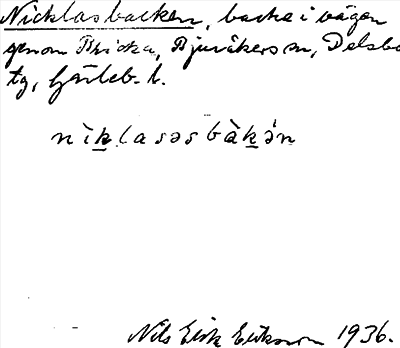 Nicklasbacken, backe i vägen
genom Bricka, Bjuråkers sn, Delsbo
tg, Gävleb. l.
nìklasəsbàkən
Nils Erik Eriksson 1936.